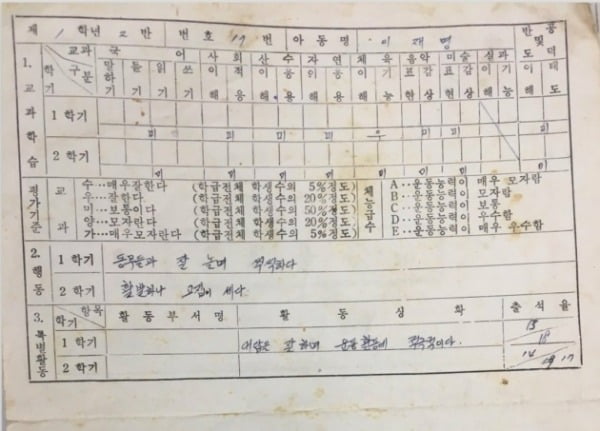 제 1 학년 2 반 번호 19 번 아동명 이 재 명
1. 교과학습
교과 국 어 사회 산수 자연 체육 음악 미술 실과 반공 및 도덕
학기 구분 말하기 듣기 읽기 쓰기 이해 적응 이해 이용 이해 이용 이해 기능 표현 감상 표현 감상 이해 기능 이해 태도
1 학기
미 미 미 미 미 우 미 미 미
2 학기
평가기준 교과
수…매우잘한다 (학급전체 학생수의 5%정도)
우…잘한다 (학급전체 학생수의 20%정도)
미…보통이다 (학급전체 학생수의 50%정도)
양…모자란다 (학급전체 학생수의 20%정도)
가…매우모자란다 (학급전체 학생수의 5%정도)
체능급수
A…운동능력이 매우 모자람
B…운동능력이 모자람
C…운동능력이 보통
D…운동능력이 우수함
E…운동능력이 매우 우수함
2. 행동
1 학기 동무들과 잘 놀며 씩씩하다
2 학기 활발하나 고집이 세다.
3. 특별활동
학기 항목 활동부서명 활동상황 출석율
1 학기
2 학기
잘 하며 운동활동에 적극적이다.
18
18
19 17